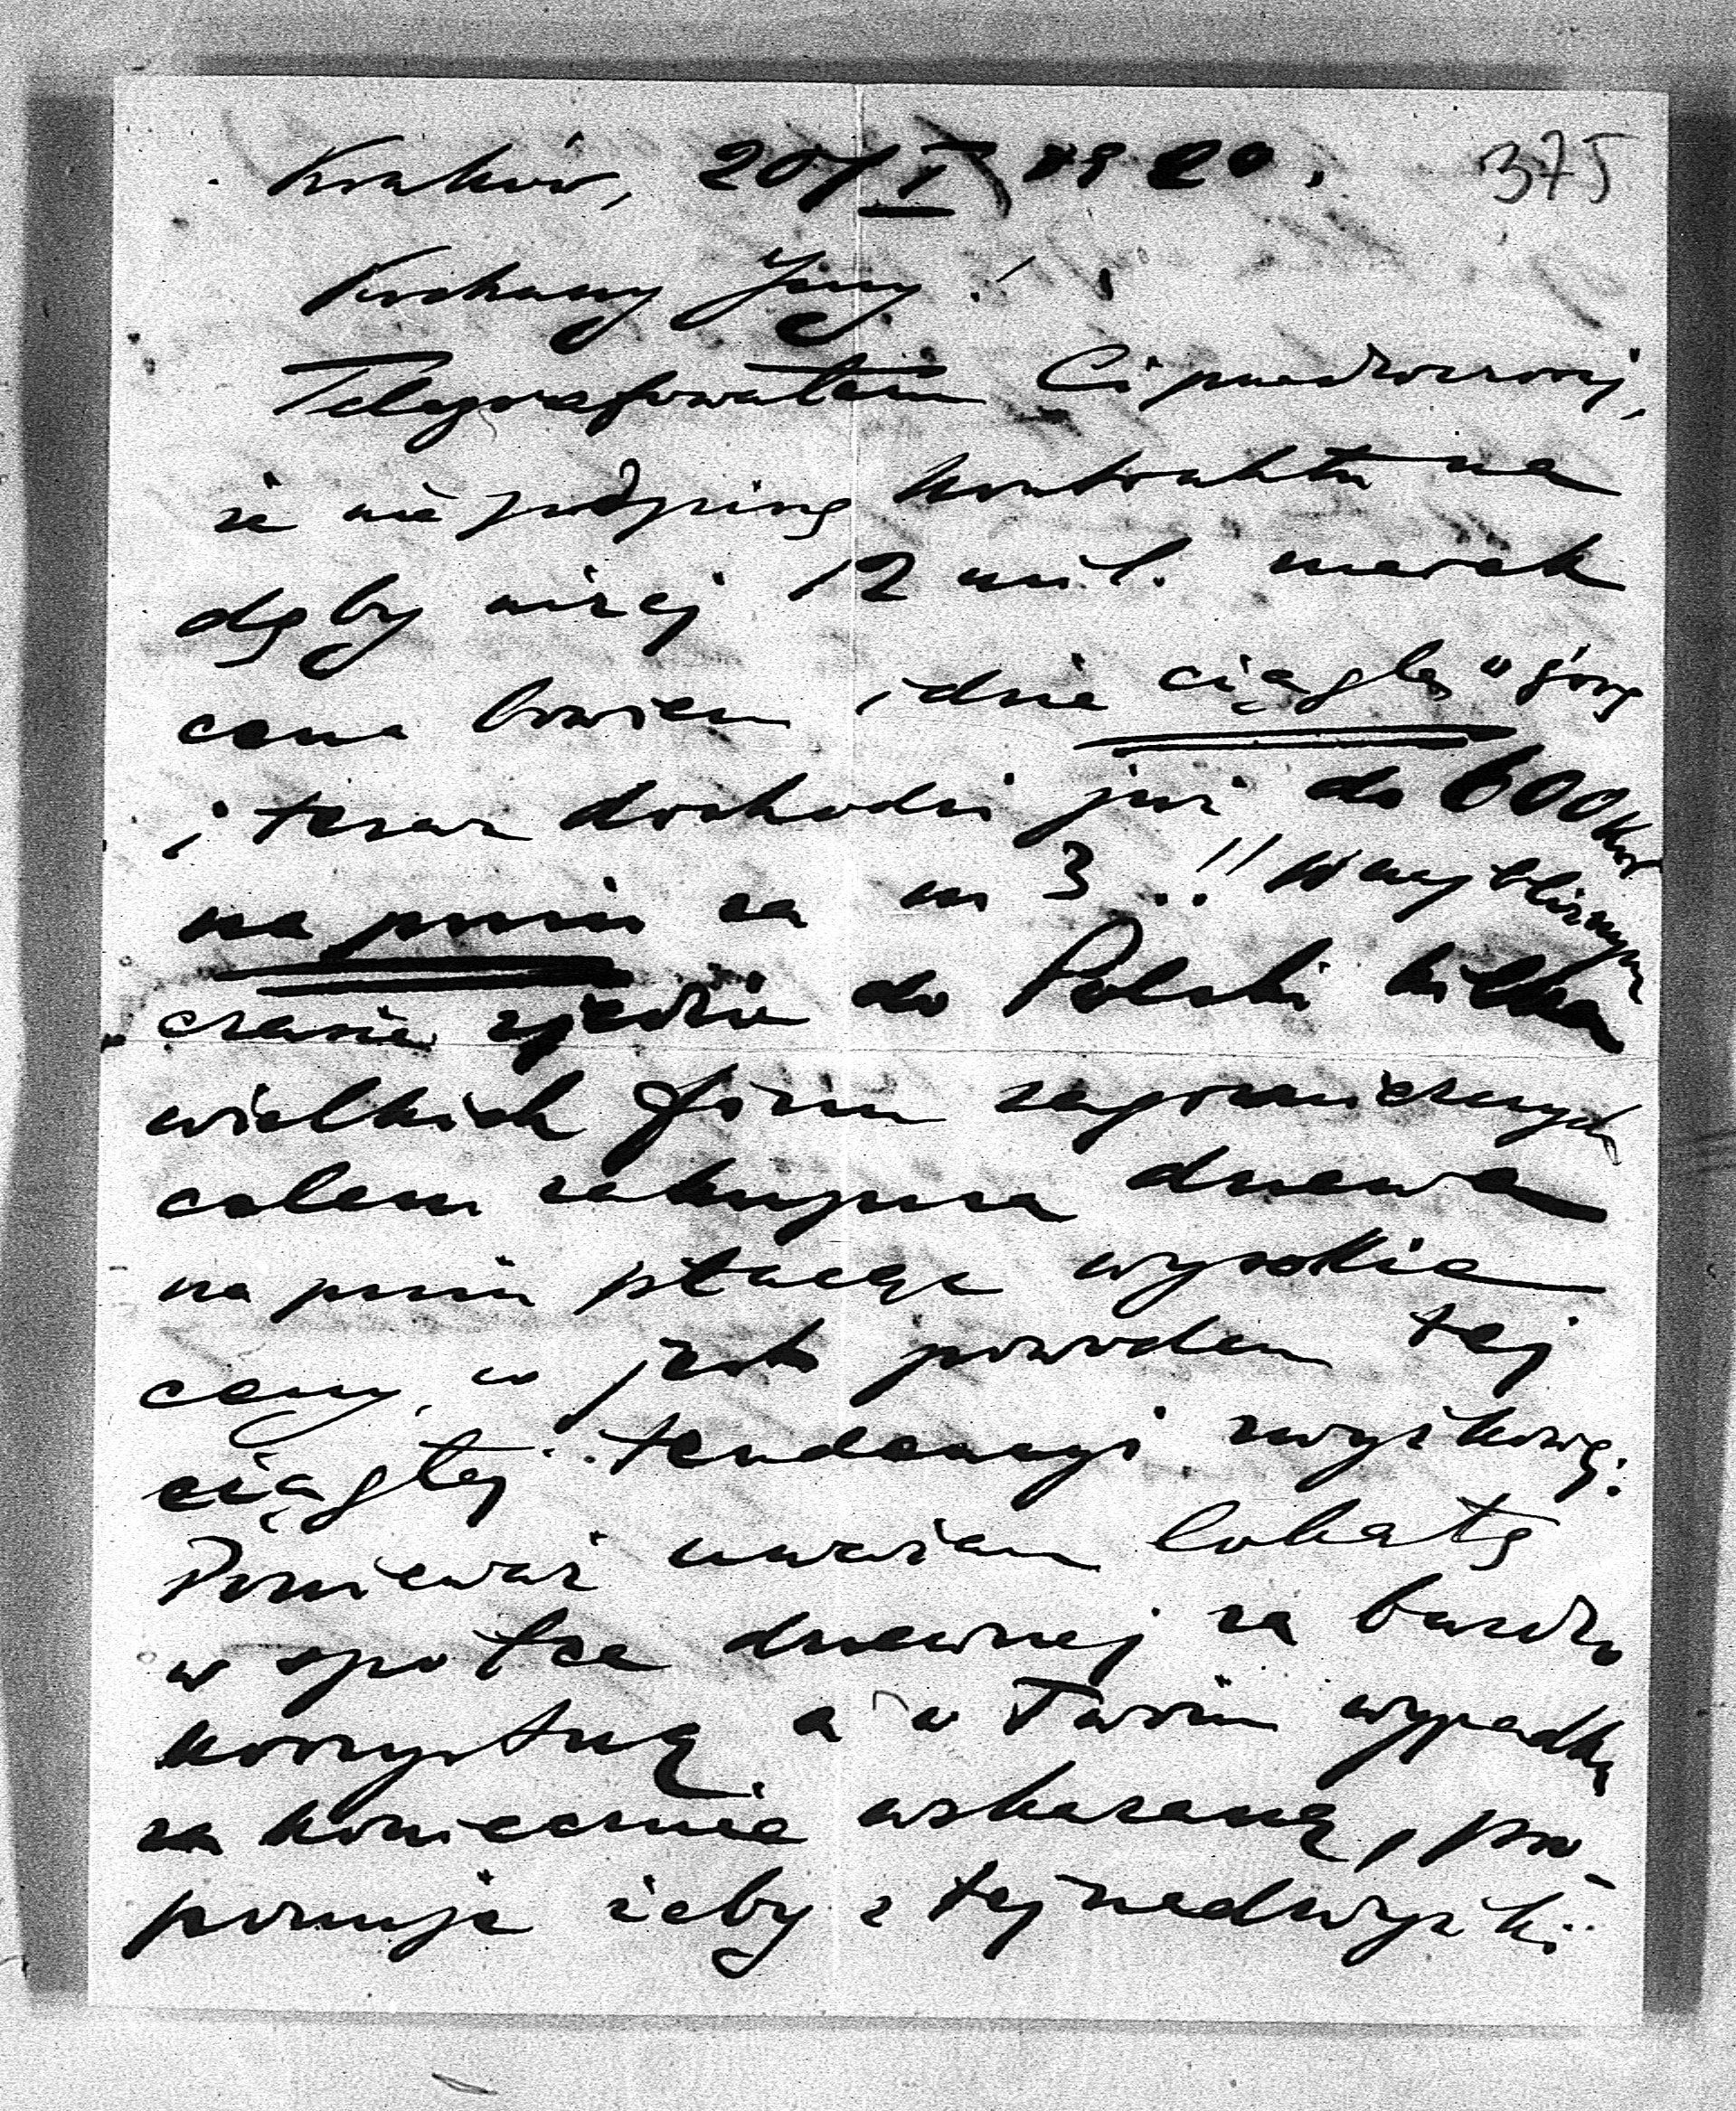 Kraków, 20/I 1920.
375
Kochany Jerzy!
Telegrafowałem Ci przedwczoraj,
że nie podpiszę kontraktu na
dęby niżej 12 mil. marek
cena bowiem idzie ciągle w górę
i teraz dochodzi już do 600 Kor
na pniu za m3..!! W najbliższym
czasie zjedzie do Polski kilka
wielkich firm zagranicznych
celem zakupna drzewa
na pniu płacąc wysokie
ceny, co jest powodem tej
ciągłej tendencyi zwyżkowej.
Ponieważ uważam lokatę
w spółce drzewnej za bardzo
korzystną a w Twoim wypadku
za koniecznie wskazaną, pro-
ponuję żeby z tej nadwyżki